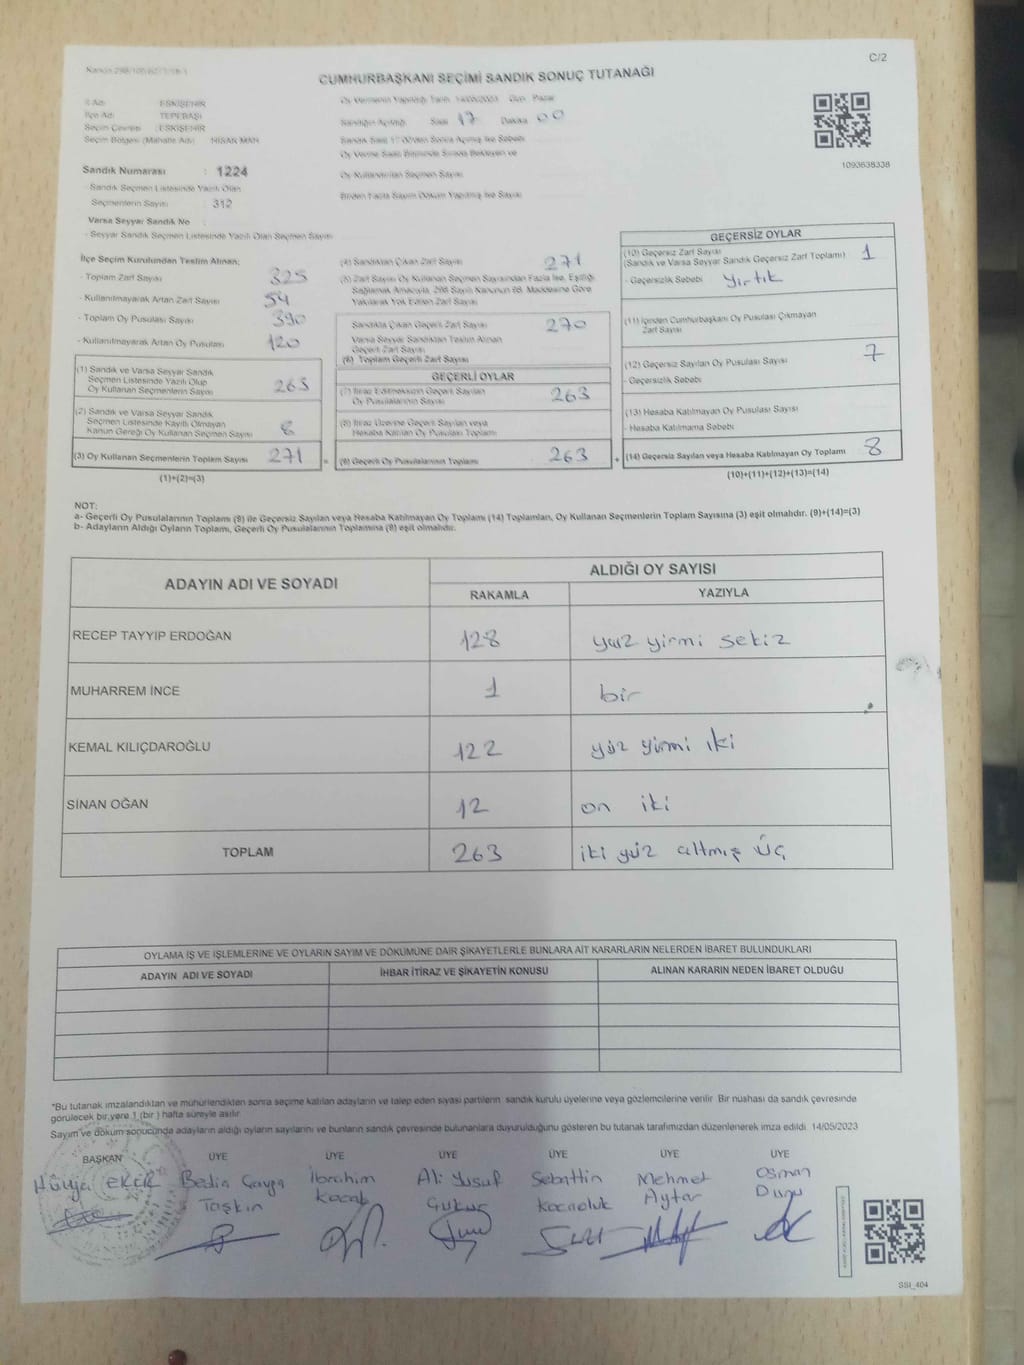 C/2
CUMHURBAŞKANI SEÇİMİ SANDIK SONUÇ TUTANAĞI
İl Adı : ESKİŞEHİR
İlçe Adı : TEPEBAŞI
Seçim Çevresi : ESKİŞEHİR
Seçim Bölgesi (Mahalle Adı) HISAR MAH
Oy Vermenin Yapıldığı Tarih 14/05/2023 Gün Pazar
Sandığın Açıldığı Saat 17 Dakika 00
1093638338
Sandık Numarası : 1224
- Sandık Seçmen Listesinde Yazılı Olan
Seçmenlerin Sayısı : 312
Varsa Seyyar Sandık No
- Seyyar Sandık Seçmen Listesinde Yazılı Olan Seçmen Sayısı
Oy Kullanılmayan Seçmen Sayısı
Birden Fazla Sayım Döküm Yapılmış İse Sayısı
İlçe Seçim Kurulundan Teslim Alınan;
- Toplam Zarf Sayısı 325
- Kullanılmayarak Artan Zarf Sayısı 54
- Toplam Oy Pusulası Sayısı 390
- Kullanılmayarak Artan Oy Pusulası 120
(1) Sandık ve Varsa Seyyar Sandık
Seçmen Listesinde Yazılı Olup
Oy Kullanan Seçmenlerin Sayısı 263
(2) Sandık ve Varsa Seyyar Sandık
Seçmen Listesinde Kayıtlı Olmayan
Kanun Gereği Oy Kullanan Seçmen Sayısı 8
(3) Oy Kullanan Seçmenlerin Toplam Sayısı 271
(1)+(2)=(3)
(4) Sandıktan Çıkan Zarf Sayısı 271
(5) Zarf Sayısı Oy Kullanan Seçmen Sayısından Fazla İse, Eşitliği
Sağlamak Amacıyla, 298 Sayılı Kanunun 98. Maddesine Göre
Yakılarak Yok Edilen Zarf Sayısı
Sandıkta Çıkan Geçerli Zarf Sayısı 270
Varsa Seyyar Sandıktan Teslim Alınan
Geçerli Zarf Sayısı
(6) Toplam Geçerli Zarf Sayısı
GEÇERLİ OYLAR
(7) İtiraz Edilmeksizin Geçerli Sayılan
Oy Pusulalarının Sayısı 263
(8) İtiraz Üzerine Geçerli Sayılan veya
Hesaba Katılan Oy Pusulaları Toplamı
(9) Geçerli Oy Pusulalarının Toplamı 263
GEÇERSİZ OYLAR
(10) Geçersiz Zarf Sayısı
(Sandık ve Varsa Seyyar Sandık Geçersiz Zarf Toplamı) 1
- Geçersizlik Sebebi yırtık
(11) İçinden Cumhurbaşkanı Oy Pusulası Çıkmayan
Zarf Sayısı
(12) Geçersiz Sayılan Oy Pusulası Sayısı 7
- Geçersizlik Sebebi
(13) Hesaba Katılmayan Oy Pusulası Sayısı
- Hesaba Katılmama Sebebi
(14) Geçersiz Sayılan veya Hesaba Katılmayan Oy Toplamı 8
(10)+(11)+(12)+(13)=(14)
NOT:
a- Geçerli Oy Pusulalarının Toplamı (9) ile Geçersiz Sayılan veya Hesaba Katılmayan Oy Toplamı (14) Toplamları, Oy Kullanan Seçmenlerin Toplam Sayısına (3) eşit olmalıdır. (9)+(14)=(3)
b- Adayların Aldığı Oyların Toplamı, Geçerli Oy Pusulalarının Toplamına (9) eşit olmalıdır.
ADAYIN ADI VE SOYADI ALDIĞI OY SAYISI
RAKAMLA YAZIYLA
RECEP TAYYİP ERDOĞAN 128 yüz yirmi sekiz
MUHARREM İNCE 1 bir
KEMAL KILIÇDAROĞLU 122 yüz yirmi iki
SİNAN OĞAN 12 on iki
TOPLAM 263 iki yüz altmış üç
OYLAMA İŞ VE İŞLEMLERİNE VE OYLARIN SAYIM VE DÖKÜMÜNE DAİR ŞİKAYETLERLE BUNLARA AİT KARARLARIN NELERDEN İBARET BULUNDUKLARI
ADAYIN ADI VE SOYADI İHBAR İTİRAZ VE ŞİKAYETİN KONUSU ALINAN KARARIN NEDEN İBARET OLDUĞU
*Bu tutanak imzalandıktan ve mühürlendikten sonra seçime katılan adayların ve talep eden siyasi partilerin sandık kurulu üyelerine veya gözlemcilerine verilir. Bir nüshası da sandık çevresinde
görülecek bir yere 1 (bir ) hafta süreyle asılır
Sayım ve döküm sonucunda adayların aldığı oyların sayılarını ve bunların sandık çevresinde bulunanlara duyurulduğunu gösteren bu tutanak tarafımızdan düzenlenerek imza edildi. 14/05/2023
BAŞKAN ÜYE ÜYE ÜYE ÜYE ÜYE ÜYE
Hülya Bedia Çavga İbrahim Ali Yusuf Sebattin Mehmet Osman
Taşkın Kocab Kocaoluk Aytar
SSI_404